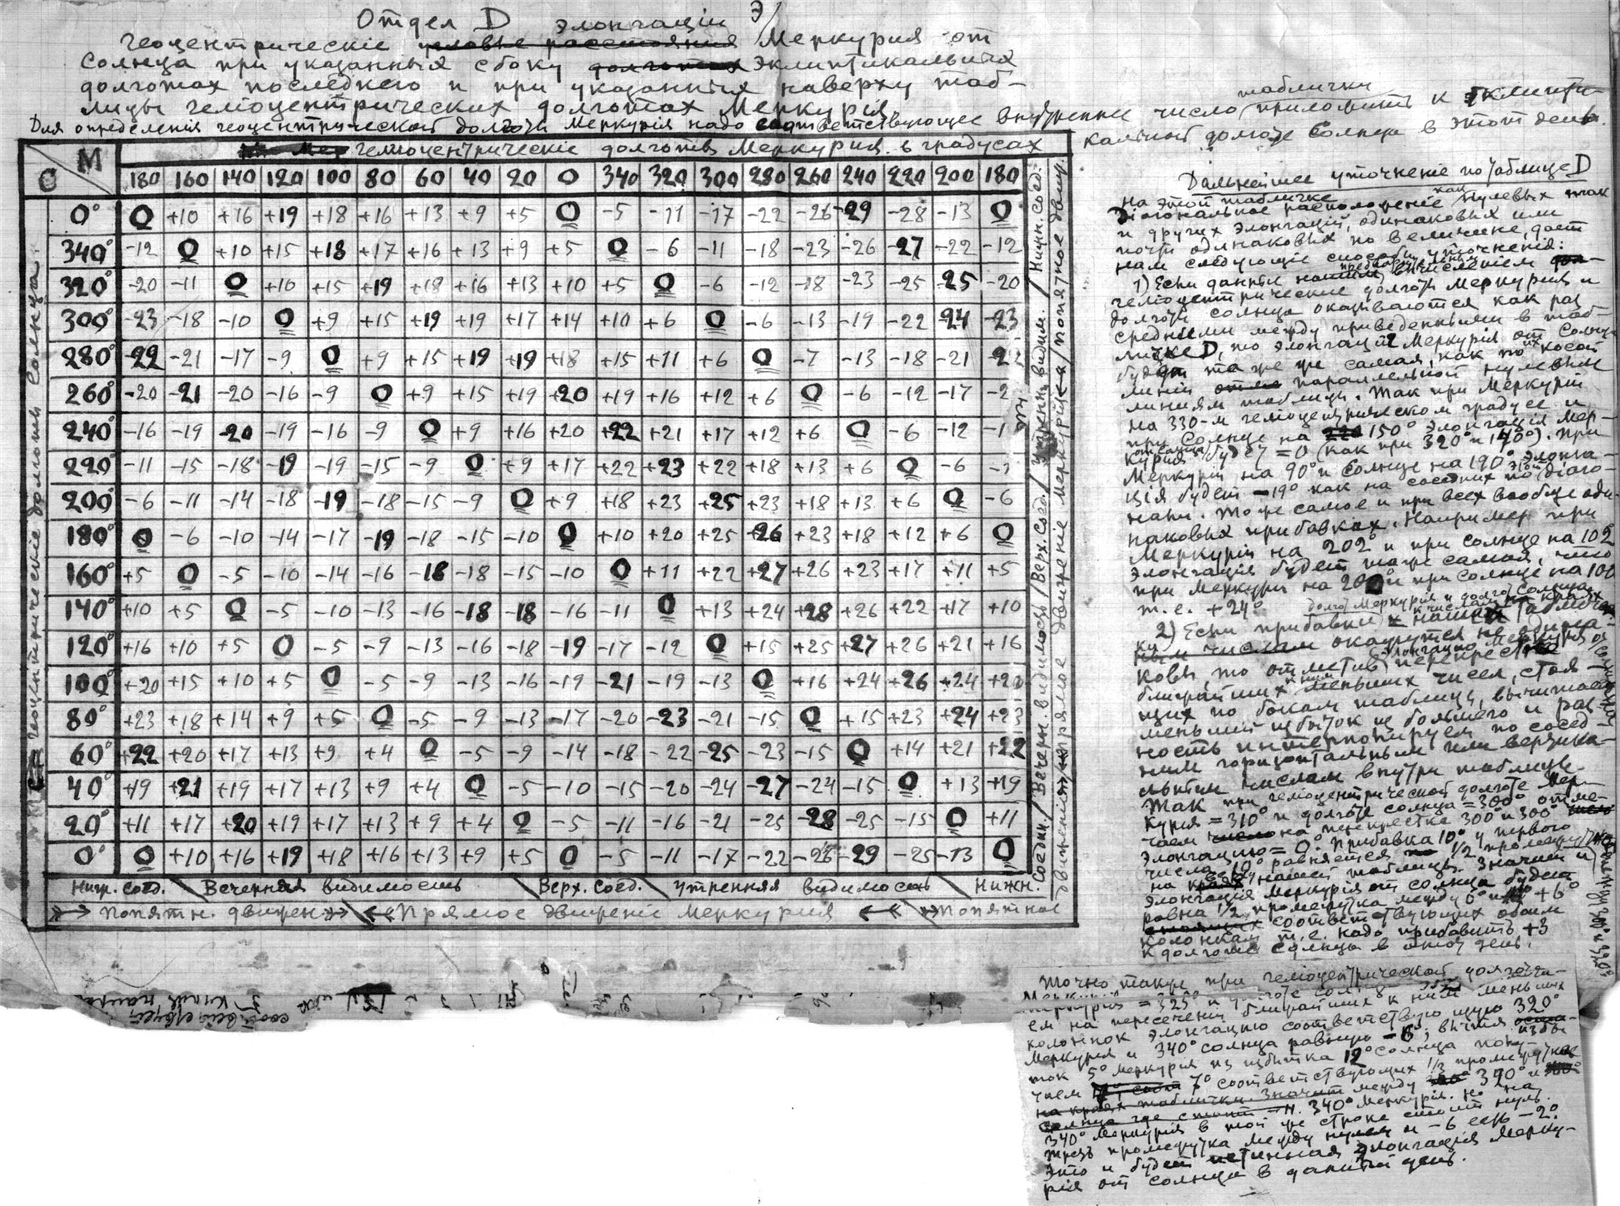 Отдел D
элонгаціи
Геоцентрическіе Меркурия от
Солнца при указанных сбоку эклиптикальных
долготах последнего и при указанных наверху таб-
лицы геліоцентрических долготах Меркурія
Для определенія геоцентрической долготы Меркурія надо соответствующее внутреннее число таблички приложить к эклипти-
кальной долготе Солнца в этот день.
М
геліоцентрическіе долготы Меркурия в градусах
С 180 160 140 120 100 80 60 40 20 0 340 320 300 280 260 240 220 200 180
0° 0 +10 +16 +19 +18 +16 +13 +9 +5 0 -5 -11 -17 -22 -26 -29 -28 -13 0
340° -12 0 +10 +15 +18 +17 +16 +13 +9 +5 0 -6 -11 -18 -23 -26 -27 -22 -12
320° -20 -11 0 +10 +15 +19 +18 +16 +13 +10 +5 0 -6 -12 -18 -23 -25 -25 -20
300° -23 -18 -10 0 +9 +15 +19 +19 +17 +14 +10 +6 0 -6 -13 -19 -22 -24 -23
280° -22 -21 -17 -9 0 +9 +15 +19 +19 +18 +15 +11 +6 0 -7 -13 -18 -21
260° -20 -21 -20 -16 -9 0 +9 +15 +19 +20 +19 +16 +12 +6 0 -6 -12 -17
240° -16 -19 -20 -19 -16 -9 0 +9 +16 +20 +22 +21 +17 +12 +6 0 -6 -12
220° -11 -15 -18 -19 -19 -15 -9 0 +9 +17 +22 +23 +22 +18 +13 +6 0 -6
200° -6 -11 -14 -18 -19 -18 -15 -9 0 +9 +18 +23 +25 +23 +18 +13 +6 0 -6
180° 0 -6 -10 -14 -17 -19 -18 -15 -10 0 +10 +20 +25 +26 +23 +18 +12 +6 0
160° +5 0 -5 -10 -14 -16 -18 -18 -15 -10 0 +11 +22 +27 +26 +23 +17 +11 +5
140° +10 +5 0 -5 -10 -13 -16 -18 -18 -16 -11 0 +13 +24 +28 +26 +22 +17 +10
120° +16 +10 +5 0 -5 -9 -13 -16 -18 -19 -17 -12 0 +15 +25 +27 +26 +21 +16
100° +20 +15 +10 +5 0 -5 -9 -13 -16 -19 -21 -19 -13 0 +16 +24 +26 +24 +20
80° +23 +18 +14 +9 +5 0 -5 -9 -13 -17 -20 -23 -21 -15 0 +15 +23 +24 +23
60° +22 +20 +17 +13 +9 +4 0 -5 -9 -14 -18 -22 -25 -23 -15 0 +14 +21 +22
40° +19 +21 +19 +17 +13 +9 +4 0 -5 -10 -15 -20 -24 -27 -24 -15 0 +13 +19
20° +11 +17 +20 +19 +17 +13 +9 +4 0 -5 -11 -16 -21 -25 -28 -25 -15 0 +11
0° 0 +10 +16 +19 +18 +16 +13 +9 +5 0 -5 -11 -17 -22 -26 -29 -25 -13 0
геоцентрическіе долготы Солнца
Нижн. соед. Вечерняя видимость Верх. соед. утренняя видимость Нижн.
Попятн. движен. Прямое движеніе Меркурия Попятное
Соедин. / Вечерн. видимость / Верх. Соед. / утренн. видим. / Нижн. Соед.
движение прямое движение Меркурия / попятное движ.
Дальнейшее уточнение по таблице D
на этой табличке
Діагональное расположение нулевых как
и других элонгацій, одинаковых или
почти одинаковых по величине, дает
нам следующіе способы уточненія:
1) Если данные вычислением
геліоцентрические долготы Меркурия и
долготы солнца оказываются как раз
средними между приведенными в таб-
личке D, то элонгация Меркурия от Солнца
будет та же самая, как по их косой
линіи параллельной нулевым
линиям таблицы. Так при Меркуріи
на 330-м геліоцентрическом градусе и
при Солнце на 150° элонгація Мер-
курия будет = 0 (как при 320° и 140°). При
Меркуріи на 90° и солнце на 190° элонга-
ція будет -19° как на соседних по этой діаго-
нали. То же самое и при всех вообще оди-
наковых прибавках. Например при
Меркуріи на 202° и при солнце на 102
элонгація будет та же самая, что
при Меркурии на 200 и при солнце на 100
т. е. +24°.
2) Если прибавки
к числам на краях таблички
окажутся не одина-
ковы, то отметив элонгацию Меркурия на перекрестке
ближайших к ним меньших чисел, стоя-
щих по бокам таблицы, вычитаем
меньший избыток из большего и раз-
ность интерполируем по сосед-
ним горизонтальным или вертика-
льным числам внутри таблицы.
Так при геліоцентрической долготе Мер-
курия = 310° и долготе солнца = 300° отме-
чаем на перекрестке 300° и 300°
элонгацию = 0°. Прибавка 10° у первого
числа равняется 1/2 промежутка
на нашей таблицы. Значит и
элонгація Меркурия от солнца будет
равна 1/2 промежутка между 0° и +6°
соответствующих обоим
колонкам т. е. надо прибавить +3
к долготе Солнца в этот день.
Точно также при геліоцентрической долготе
Меркурия = 325° и долготе солнца
ем на пересечении ближайших к ним меньших
колонок элонгацию соответствующую 320°
Меркурия и 340° солнца равную -6°, вычтя избы-
ток 5° Меркурия из избытка 12° солнца полу-
чаем 7° соответствующих 1/3 промежутка
между 320° и
340° Меркурия. Но на
340° Меркурия в той же строке стоит нуль.
Треть промежутка между нулем и -6 есть -2°.
Это и будет истинная элонгация Мерку-
рія от солнца в данный день.